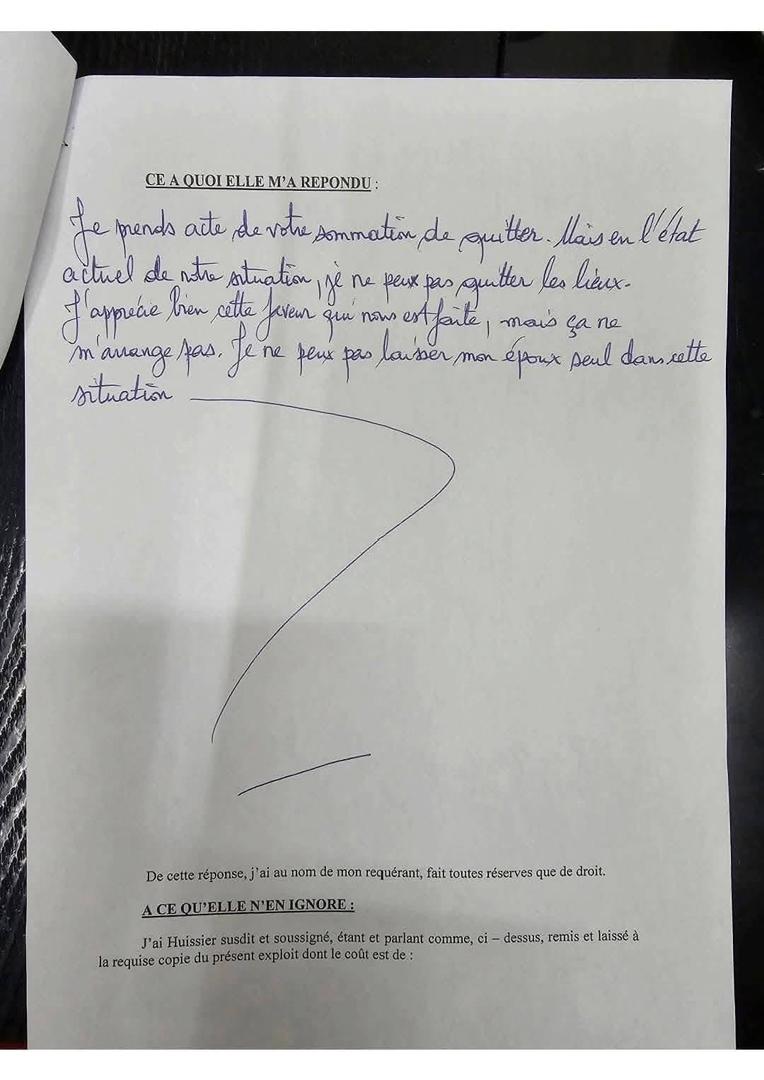 CE A QUOI ELLE M'A REPONDU :
Je prends acte de votre sommation de quitter. Mais en l'état
actuel de notre situation, je ne peux pas quitter les lieux.
J'apprécie bien cette faveur qui nous est faite, mais ça ne
m'arrange pas. Je ne peux pas laisser mon époux seul dans cette
situation
De cette réponse, j'ai au nom de mon requérant, fait toutes réserves que de droit.
A CE QU'ELLE N'EN IGNORE :
J'ai Huissier susdit et soussigné, étant et parlant comme, ci – dessus, remis et laissé à
la requise copie du présent exploit dont le coût est de :